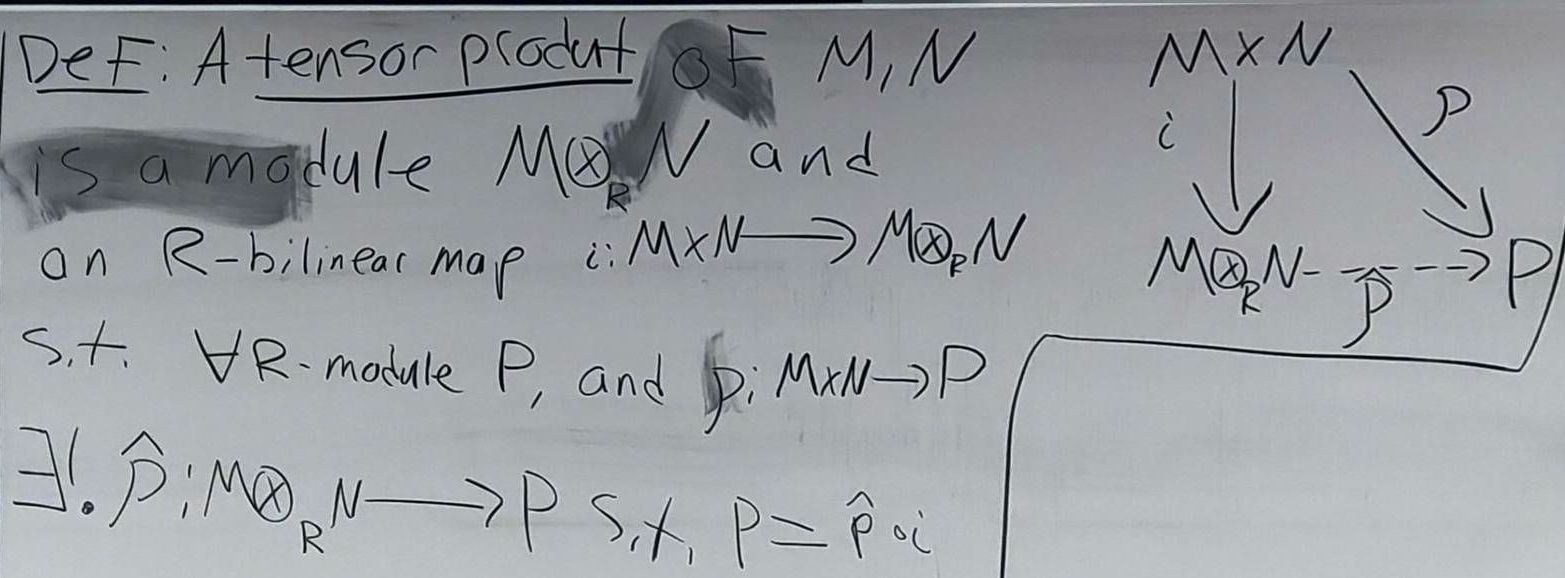 Def: A tensor product of M, N
is a module M⊗_R N and
an R-bilinear map i: M×N ⟶ M⊗_R N
s.t. ∀R-module P, and p: M×N→P
∃!. p̂: M⊗_R N ⟶ P s.t. p = p̂∘i
M×N
i p
M⊗_R N ⇢ P
p̂